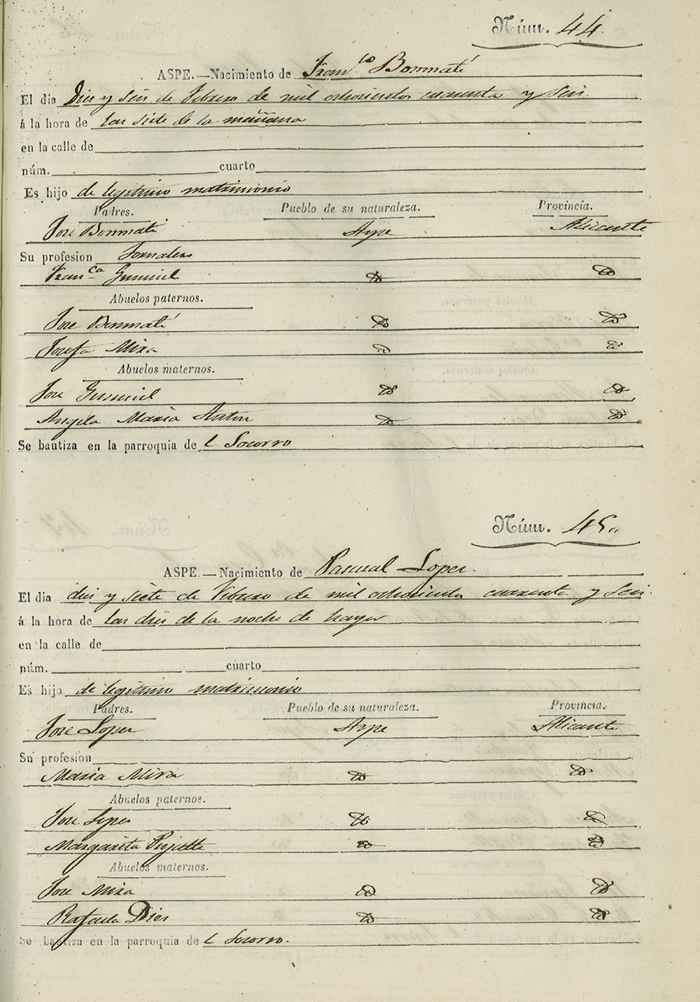 Núm. 44.
ASPE.—Nacimiento de Franco Bonmatí
El dia Diez y seis de Febrero de mil ochocientos cuarenta y seis
á la hora de las siete de la mañana
en la calle de
núm. cuarto
Es hijo de legitimo matrimonio
Padres. Pueblo de su naturaleza. Provincia.
Jose Bonmatí Aspe Alicante
Su profesion Jornalero
Franca
Abuelos paternos.
Jose Bonmatí
Josefa Mira
Abuelos maternos.
Jose
Angela Maria Anton
Se bautiza en la parroquia de l Socorro
Núm. 45
ASPE.—Nacimiento de Pascual Lopez.
El día diez y siete de Febrero de mil ochocientos cuarenta y seis
á la hora de las diez de la noche de hayer
en la calle de
núm. cuarto
Es hijo de legitimo matrimonio
Padres. Pueblo de su naturaleza. Provincia.
Jose Lopez Aspe Alicante
Su profesion
Maria Mira
Abuelos paternos.
Jose Lopez
Margarita
Abuelos maternos.
Jose Mira
Rafaela Diez
Se bautiza en la parroquia de l Socorro.